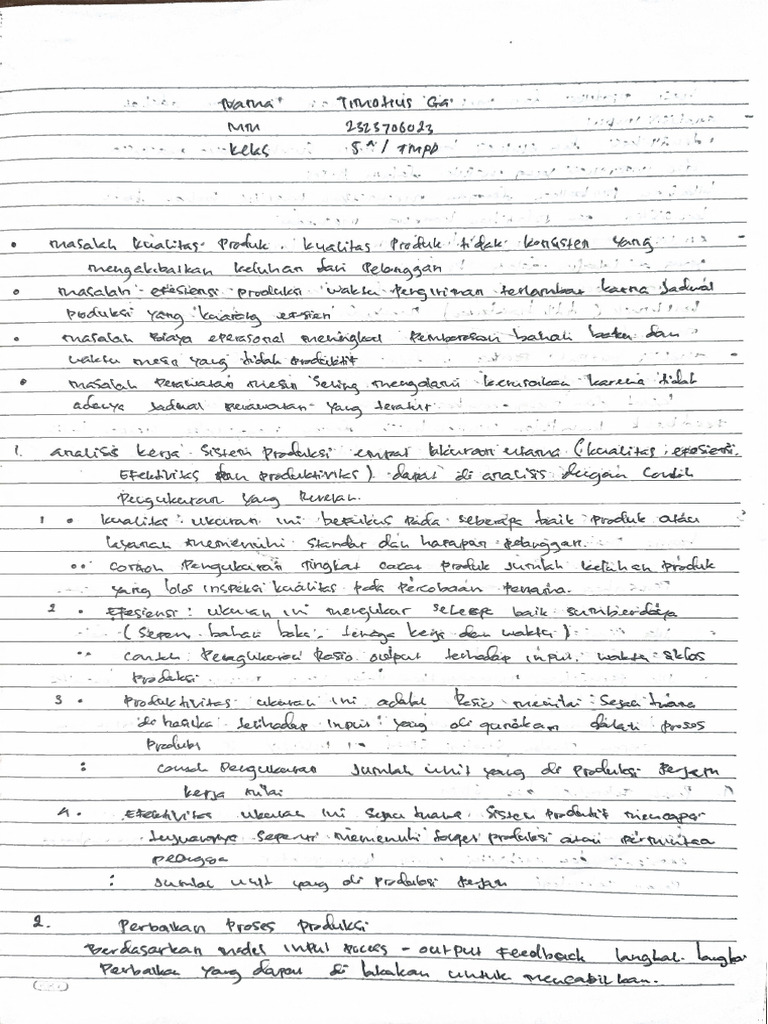 Nama : Timotius Ga
NIM 2323706023
Kelas 5 A / TMPD
• masalah kualitas produk. kualitas produk tidak konsisten yang
mengakibatkan keluhan dari Pelanggan
• masalah efesiensi produksi waktu pengiriman terlambat karna Jadwal
produksi yang kurang efesien
• masalah Biaya operasonal meningkat Pemborosan bahan baku dan
waktu mesin yang tidak produktif
• masalah Perawatan mesin sering mengalami kerusakan karena tidak
adanya Jadwal perawatan yang teratur
1. analisis kerja sistem produksi empat ukuran utama (kualitas, efesiensi,
Efektivitas dan produktivitas) dapat di analisis dengan contoh
Pengukuran yang Relevan.
1 • kualitas : ukuran ini berfokus pada seberapa baik produk atau
layanan memenuhi standar dan harapan pelanggan.
•• contoh Pengukuran Tingkat cacat produk Jumlah keluhan produk
yang lolos inspeksi kualitas pada Percobaan Pertama.
2 • Efesiensi : ukuran ini mengukur seberapa baik sumberdaya
(seperti bahan baku, tenaga kerja dan waktu)
•• contoh Pengukuran Rasio output terhadap input, waktu siklos
Produksi
3 • Produktivitas ukuran ini adalah Rasio
terhadap input yang di gunakan dalam proses
Produksi
: contoh Pengukuran Jumlah unit yang di produksi perjam
kerja
4. Efektivitas ukuran ini sistem produktif mencapai
tujuannya seperti memenuhi target produksi atau permintaan

: Jumlah unit yang di produksi perjam
2. Perbaikan Proses Produksi
Berdasarkan model input proces - output Feedback langkah-langkah
Perbaikan yang dapat di lakukan untuk